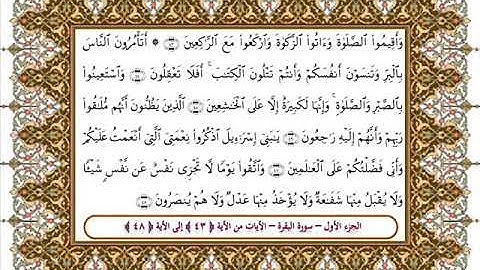 وَأَقِيمُوا۟ ٱلصَّلَوٰةَ وَءَاتُوا۟ ٱلزَّكَوٰةَ وَٱرْكَعُوا۟ مَعَ ٱلرَّٰكِعِينَ ۝٤٣ ۞ أَتَأْمُرُونَ ٱلنَّاسَ
بِٱلْبِرِّ وَتَنسَوْنَ أَنفُسَكُمْ وَأَنتُمْ تَتْلُونَ ٱلْكِتَٰبَ ۚ أَفَلَا تَعْقِلُونَ ۝٤٤ وَٱسْتَعِينُوا۟
بِٱلصَّبْرِ وَٱلصَّلَوٰةِ ۚ وَإِنَّهَا لَكَبِيرَةٌ إِلَّا عَلَى ٱلْخَٰشِعِينَ ۝٤٥ ٱلَّذِينَ يَظُنُّونَ أَنَّهُم مُّلَٰقُوا۟
رَبِّهِمْ وَأَنَّهُمْ إِلَيْهِ رَٰجِعُونَ ۝٤٦ يَٰبَنِىٓ إِسْرَٰٓءِيلَ ٱذْكُرُوا۟ نِعْمَتِىَ ٱلَّتِىٓ أَنْعَمْتُ عَلَيْكُمْ
وَأَنِّى فَضَّلْتُكُمْ عَلَى ٱلْعَٰلَمِينَ ۝٤٧ وَٱتَّقُوا۟ يَوْمًا لَّا تَجْزِى نَفْسٌ عَن نَّفْسٍ شَيْـًٔا
وَلَا يُقْبَلُ مِنْهَا شَفَٰعَةٌ وَلَا يُؤْخَذُ مِنْهَا عَدْلٌ وَلَا هُمْ يُنصَرُونَ ۝٤٨
الجزء الأول – سورة البقرة – الآيات من الآية ﴿٤٣﴾ إلى الآية ﴿٤٨﴾